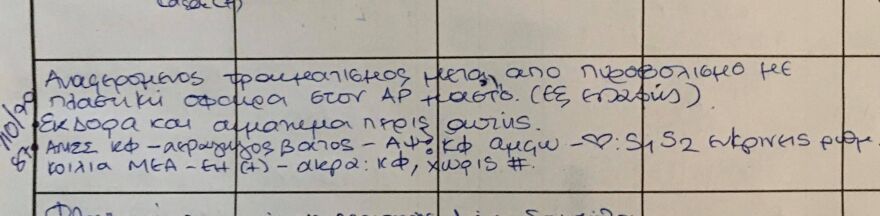 Αναφερόμενος τραυματισμός μετά από πυροβολισμό με
πλαστική σφαίρα στον ΑΡ μαστό. (εξ επαφής)
Εκδορά και αιμάτωμα πέριξ αυτής.
ΑΜΣΣ κφ - ακρ βατος - ΑΨ: κφ αμφω - ♡: S1 S2 ευκρινείς ρυθμ.
κοιλία ΜΕΑ - ΕΗ (+) - άκρα: κφ, χωρίς #.